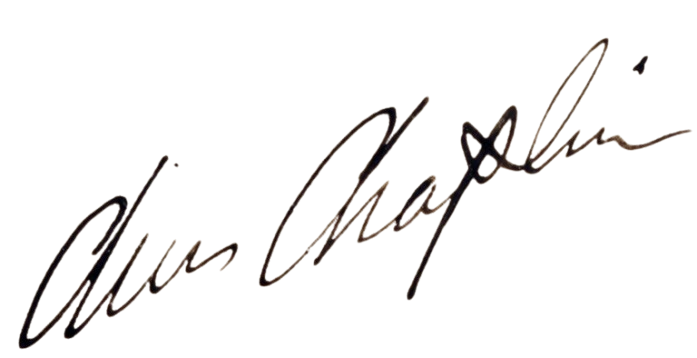 Chris Chaplin